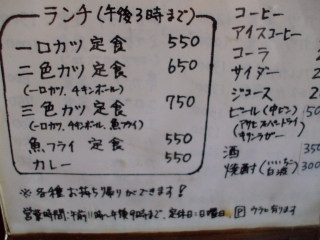 ランチ(午後3時まで)
一口カツ定食 550
二色カツ定食 650
(一口カツ、チキンボール)
三色カツ定食 750
(一口カツ、チキンボール、魚フライ)
魚フライ定食 550
カレー 550
コーヒー
アイスコーヒー
コーラ
サイダー
ジュース
ビール(中ビン)
(アサヒスーパードライ)
キリンラガー
酒 350
焼酎(いいちこ 300
※各種お持ち帰りができます!
営業時間:午前11時〜午後9時まで、定休日:日曜日 P ウラに有ります